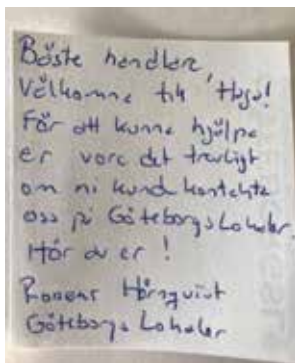 Bäste handlare,
Välkomna till Haga!
För att kunna hjälpa
er vore det trevligt
om ni kunde kontakta
oss på Göteborgs Lokaler.
Hör av er!
Hörnquist
Göteborgs Lokaler